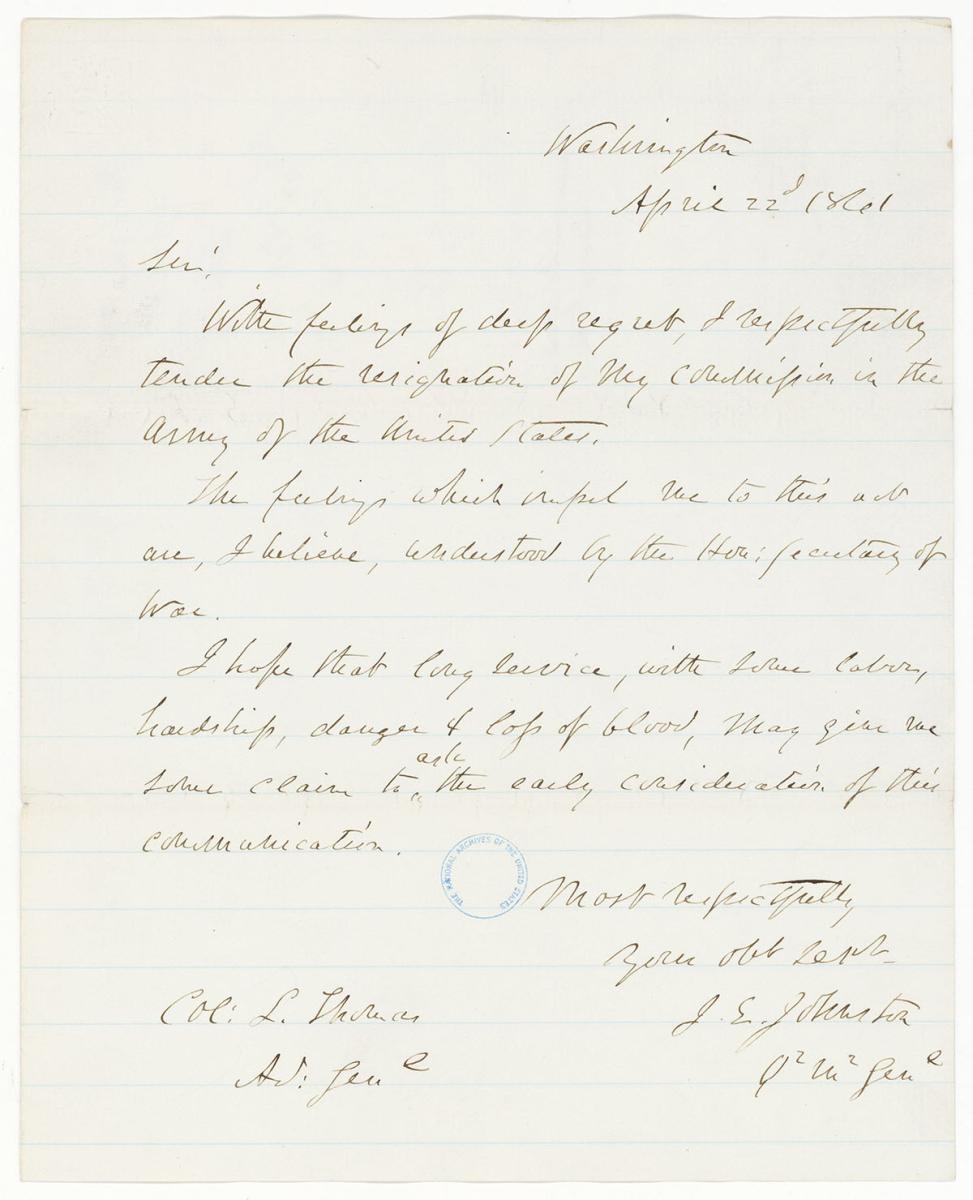 Washington
April 22d 1861
Sir,
With feelings of deep regret, I respectfully
tender the resignation of my commission in the
Army of the United States.
The feelings which impel me to this act
are, I believe, understood by the Hon: Secretary of
War.
I hope that long service, with some labor,
hardship, danger & loss of blood, may give me
ask
some claim to ‸ the early consideration of this
communication.
THE NATIONAL ARCHIVES OF THE UNITED STATES
Most respectfully
Your obt servt
Col: L. Thomas
J. E. Johnston
Ad: Genl
Qr Mr Genl